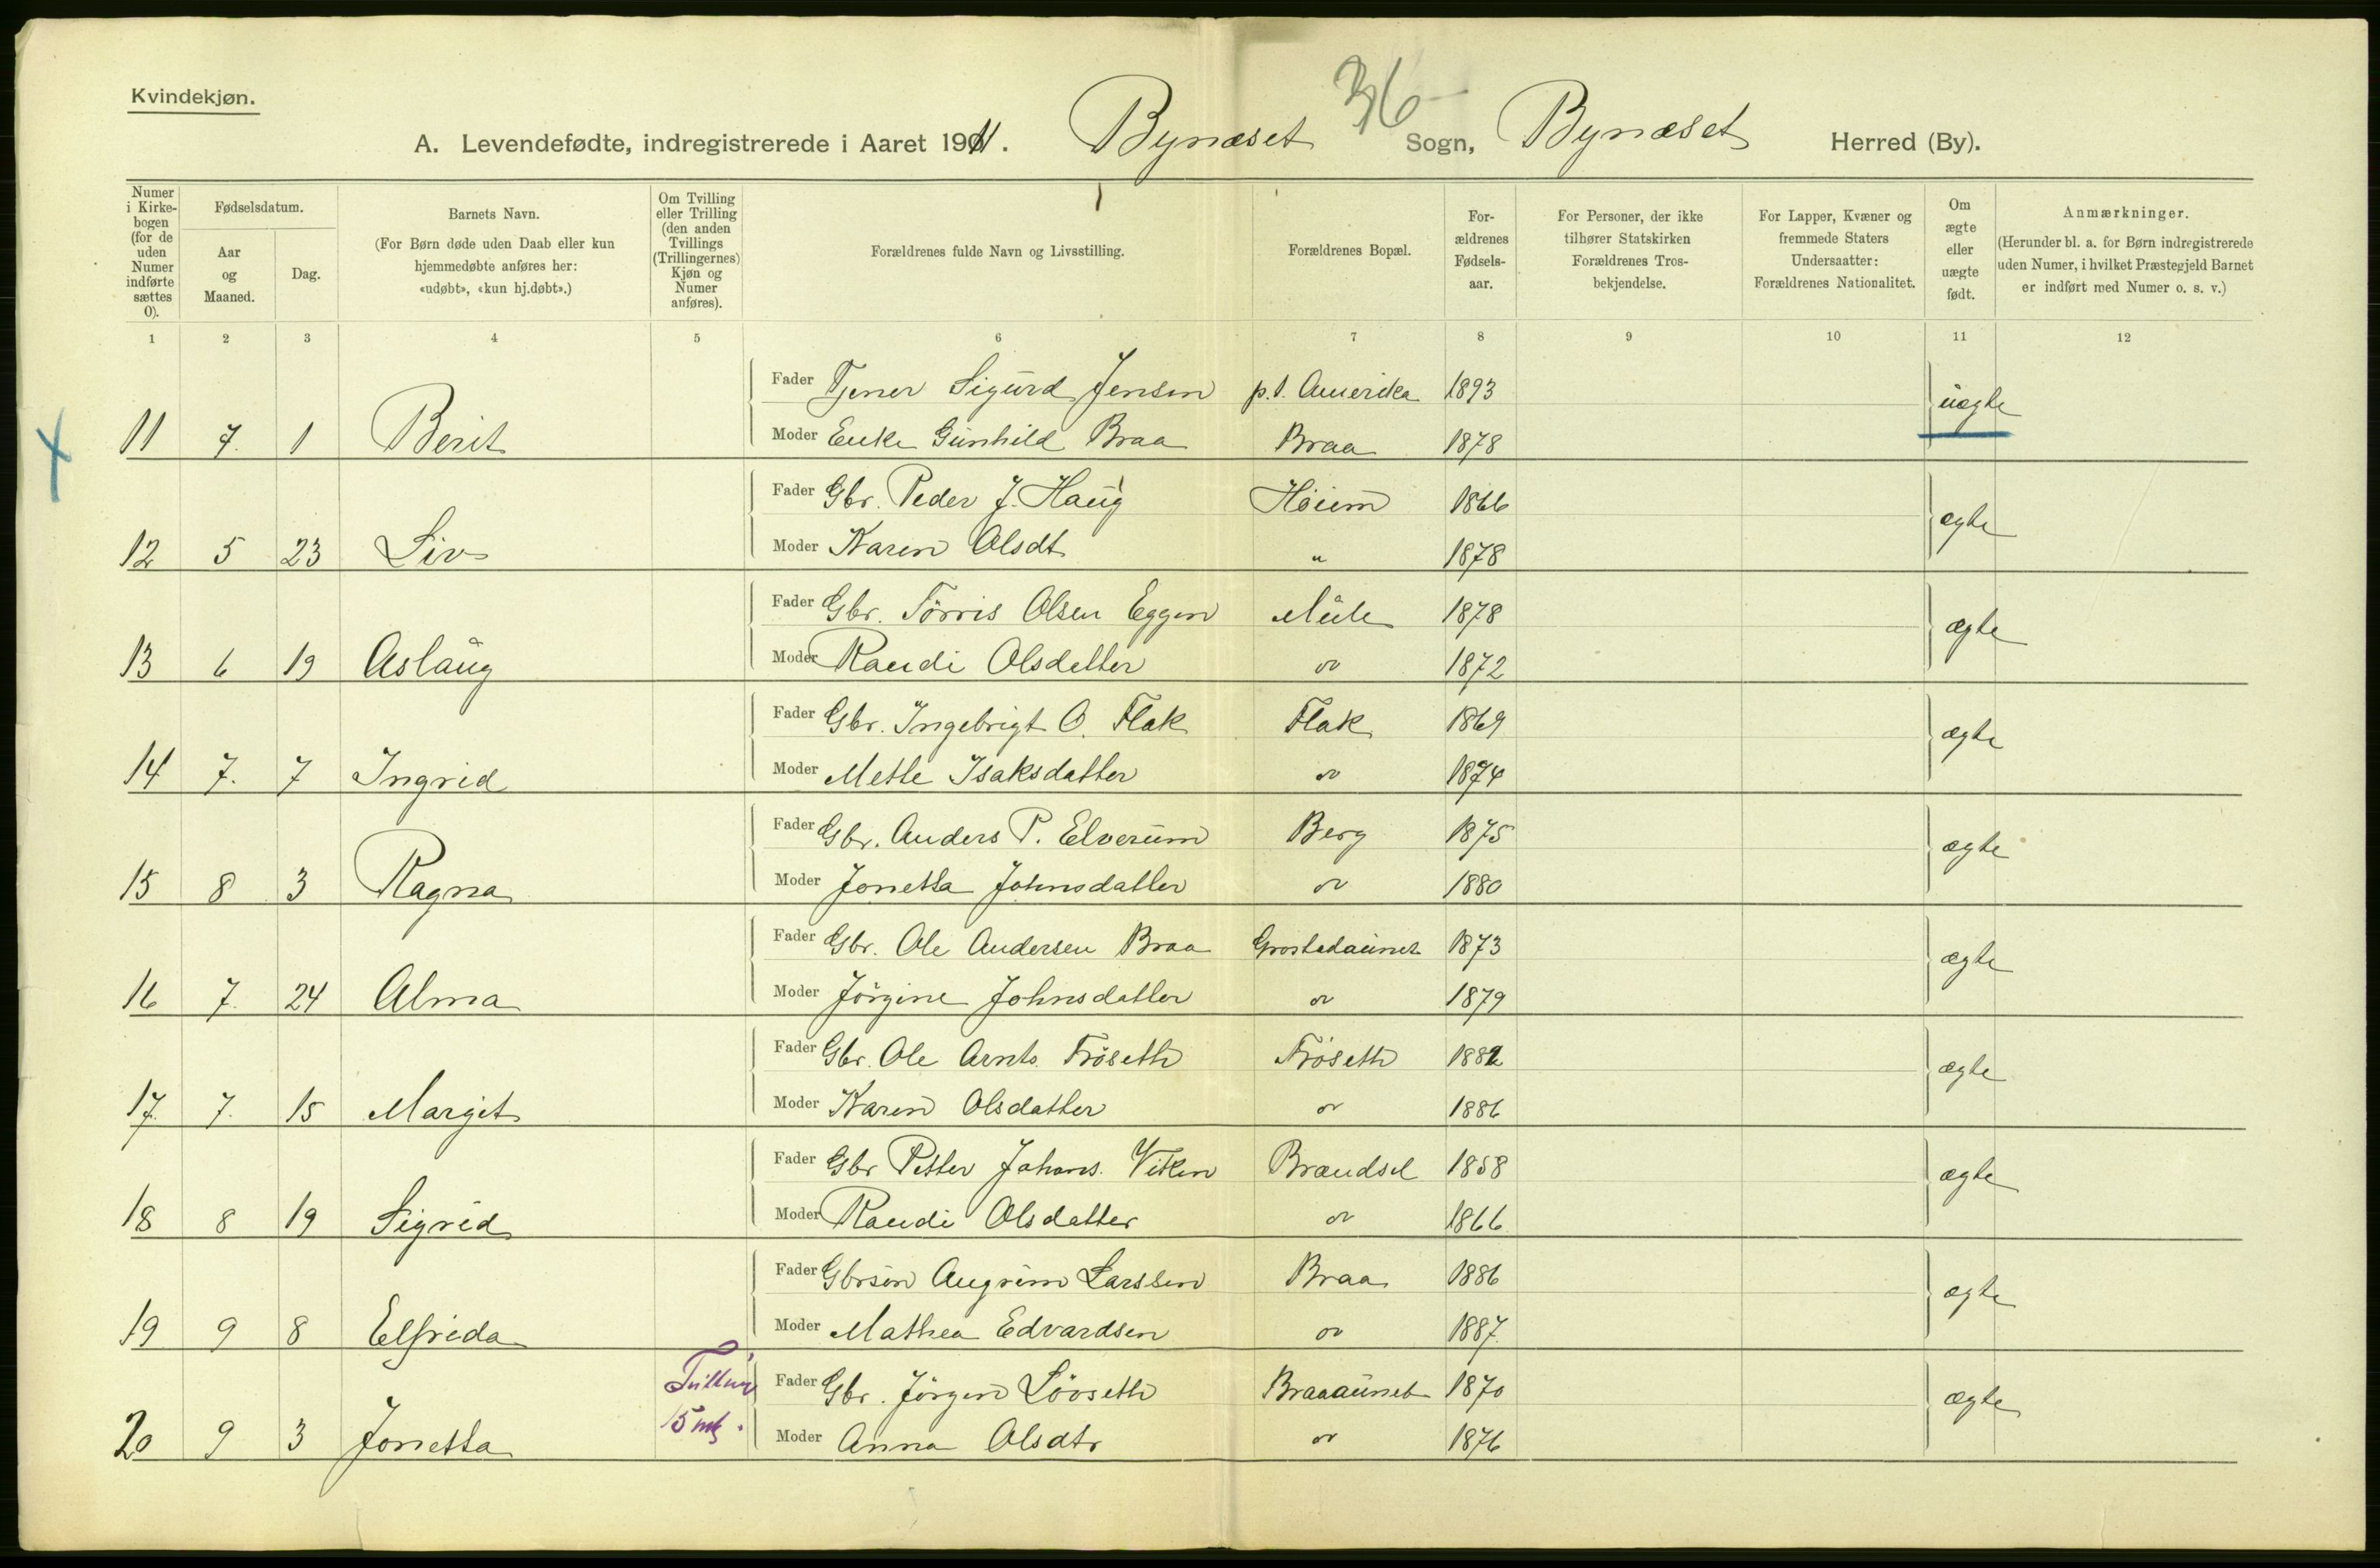 Kvindekjøn.
36
A. Levendefødte, indregistrerede i Aaret 1911. Bynæset Sogn, Bynæset Herred (By).
Numer i Kirke-bogen (for de uden Numer indførte sættes 0).
Fødselsdatum.
Aar og Maaned.
Dag.
Barnets Navn.
(For Børn døde uden Daab eller kun hjemmedøbte anføres her: «udøbt», «kun hj.døbt».)
Om Tvilling eller Trilling (den anden Tvillings (Trillingernes) Kjøn og Numer anføres).
Forældrenes fulde Navn og Livsstilling.
Forældrenes Bopæl.
For-ældrenes Fødsels-aar.
For Personer, der ikke tilhører Statskirken Forældrenes Tros-bekjendelse.
For Lapper, Kvæner og fremmede Staters Undersaatter: Forældrenes Nationalitet.
Om ægte eller uægte født.
Anmærkninger.
(Herunder bl. a. for Børn indregistrerede uden Numer, i hvilket Præstegjeld Barnet er indført med Numer o. s. v.)
1 2 3 4 5 6 7 8 9 10 11 12
Fader Tjener Sigurd Jensen p.t. Amerika 1893 uægte
11 7. 1 Berit Moder Enke Gunhild Braa Braa 1878
Fader Gbr. Peder J. Haug Höiem 1866 ægte
12 5 23 Liv Moder Karen Olsdt " 1878
Fader Gbr. Törris Olsen Eggen Mule 1878 ægte
13 6 19 Aslaug Moder Randi Olsdatter " 1872
Fader Gbr. Ingebrigt O. Flak Flak 1869 ægte
14 7. 7 Ingrid Moder Mette Isaksdatter " 1874
Fader Gbr. Anders P. Elverum Berg 1875 ægte
15 8 3 Ragna Moder Jonetta Johnsdatter " 1880
Fader Gbr. Ole Andersen Braa Grostadaunet 1873 ægte
16 7. 24 Alma Moder Jörgine Johnsdatter " 1879
Fader Gbr. Ole Arnts. Frösetth Frösetth 1882 ægte
17. 7. 15 Margit Moder Karen Olsdatter " 1886
Fader Gbr Petter Johans. Viken Brændsel 1858 ægte
18 8 19 Sigrid Moder Randi Olsdatter " 1866
Fader Gbrsön Angrim Larssen Braa 1886 ægte
19 9 8 Elfrida Moder Mathea Edvardsen " 1887.
Fader Gbr. Jörgen Lövseth Braaaunet 1870 ægte
20 9 3 Jonetta 15 mk. Moder Anna Olsdtr " 1876